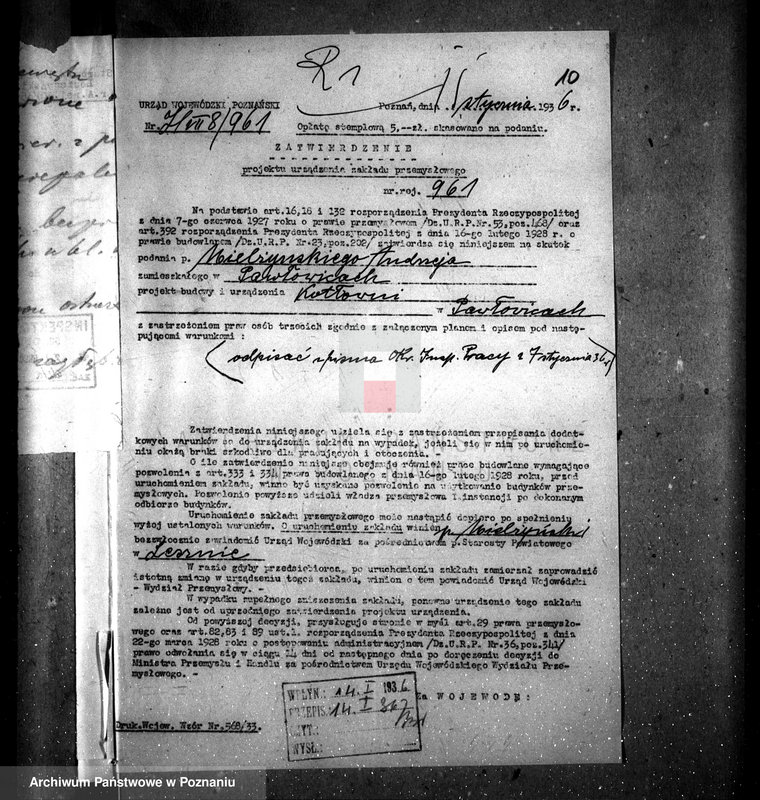 10
URZĄD WOJEWÓDZKI POZNAŃSKI
Poznań, dnia stycznia 1936 r.
Nr. 8/961
Opłatę stemplową 5.--zł. skasowano na podaniu.
ZATWIERDZENIE
projektu urządzenia zakładu przemysłowego
nr.rej. 961
Na podstawie art.16,18 i 132 rozporządzenia Prezydenta Rzeczypospolitej
z dnia 7-go czerwca 1927 roku o prawie przemysłowem /Dz.U.R.P.Nr.53,poz.468/ oraz
art.392 rozporządzenia Prezydenta Rzeczypospolitej z dnia 16-go lutego 1928 r. o
prawie budowlanem /Dz.U.R.P. Nr.23,poz.202/ zatwierdza się niniejszem na skutek
podania p. Mielżyńskiego Andrzeja
zamieszkałego w Pawłowicach
projekt budowy i urządzenia Kotłowni
w Pawłowicach
z zastrzeżeniem praw osób trzecich zgodnie z załączonym planem i opisem pod nastę-
pującemi warunkami :
(odpisać z pisma Okr. Insp. Pracy z 7 stycznia 36 r)
Zatwierdzenia niniejszego udziela się z zastrzeżeniem przepisania dodat-
kowych warunków co do urządzenia zakładu na wypadek, jeżeli się w nim po uruchomie-
niu okażą braki szkodliwe dla pracujących i otoczenia.
O ile zatwierdzenie niniejsze obejmuje również prace budowlane wymagające
pozwolenia z art.333 i 334 prawa budowlanego z dnia 16-go lutego 1928 roku, przed
uruchomieniem zakładu, winno być uzyskane pozwolenie na użytkowanie budynków prze-
mysłowych. Pozwolenie powyższe udzieli władza przemysłowa I.instancji po dokonanym
odbiorze budynków.
Uruchomienie zakładu przemysłowego może nastąpić dopiero po spełnieniu
wyżej ustalonych warunków. O uruchomieniu zakładu winien p. Mielżyński
bezzwłocznie zawiadomić Urząd Wojewódzki za pośrednictwem p.Starosty Powiatowego
w Lesznie
W razie gdyby przedsiębiorca, po uruchomieniu zakładu zamierzał zaprowadzić
istotną zmianę w urządzeniu tegoż zakładu, winien o tem powiadomić Urząd Wojewódzki
- Wydział Przemysłowy. -
W wypadku zupełnego zniszczenia zakładu, ponowne urządzenie tego zakładu
zależne jest od uprzedniego zatwierdzenia projektu urządzenia.
Od powyższej decyzji, przysługuje stronie w myśl art.29 prawa przemysło-
wego oraz art.82,83 i 89 ust.1. rozporządzenia Prezydenta Rzeczypospolitej z dnia
22-go marca 1928 roku o postępowaniu administracyjnem /Dz.U.R.P. Nr.36,poz.341/
prawo odwołania się w ciągu 14 dni od następnego dnia po doręczeniu decyzji do
Ministra Przemysłu i Handlu za pośrednictwem Urzędu Wojewódzkiego Wydziału Prze-
mysłowego. -
Za WOJEWODĘ:
WPŁYN.: 14. I 1936
PRZEPIS: 14. I
CZYT.:
WYSŁ.:
Druk.Wojew. Wzór Nr.568/33.
Archiwum Państwowe w Poznaniu